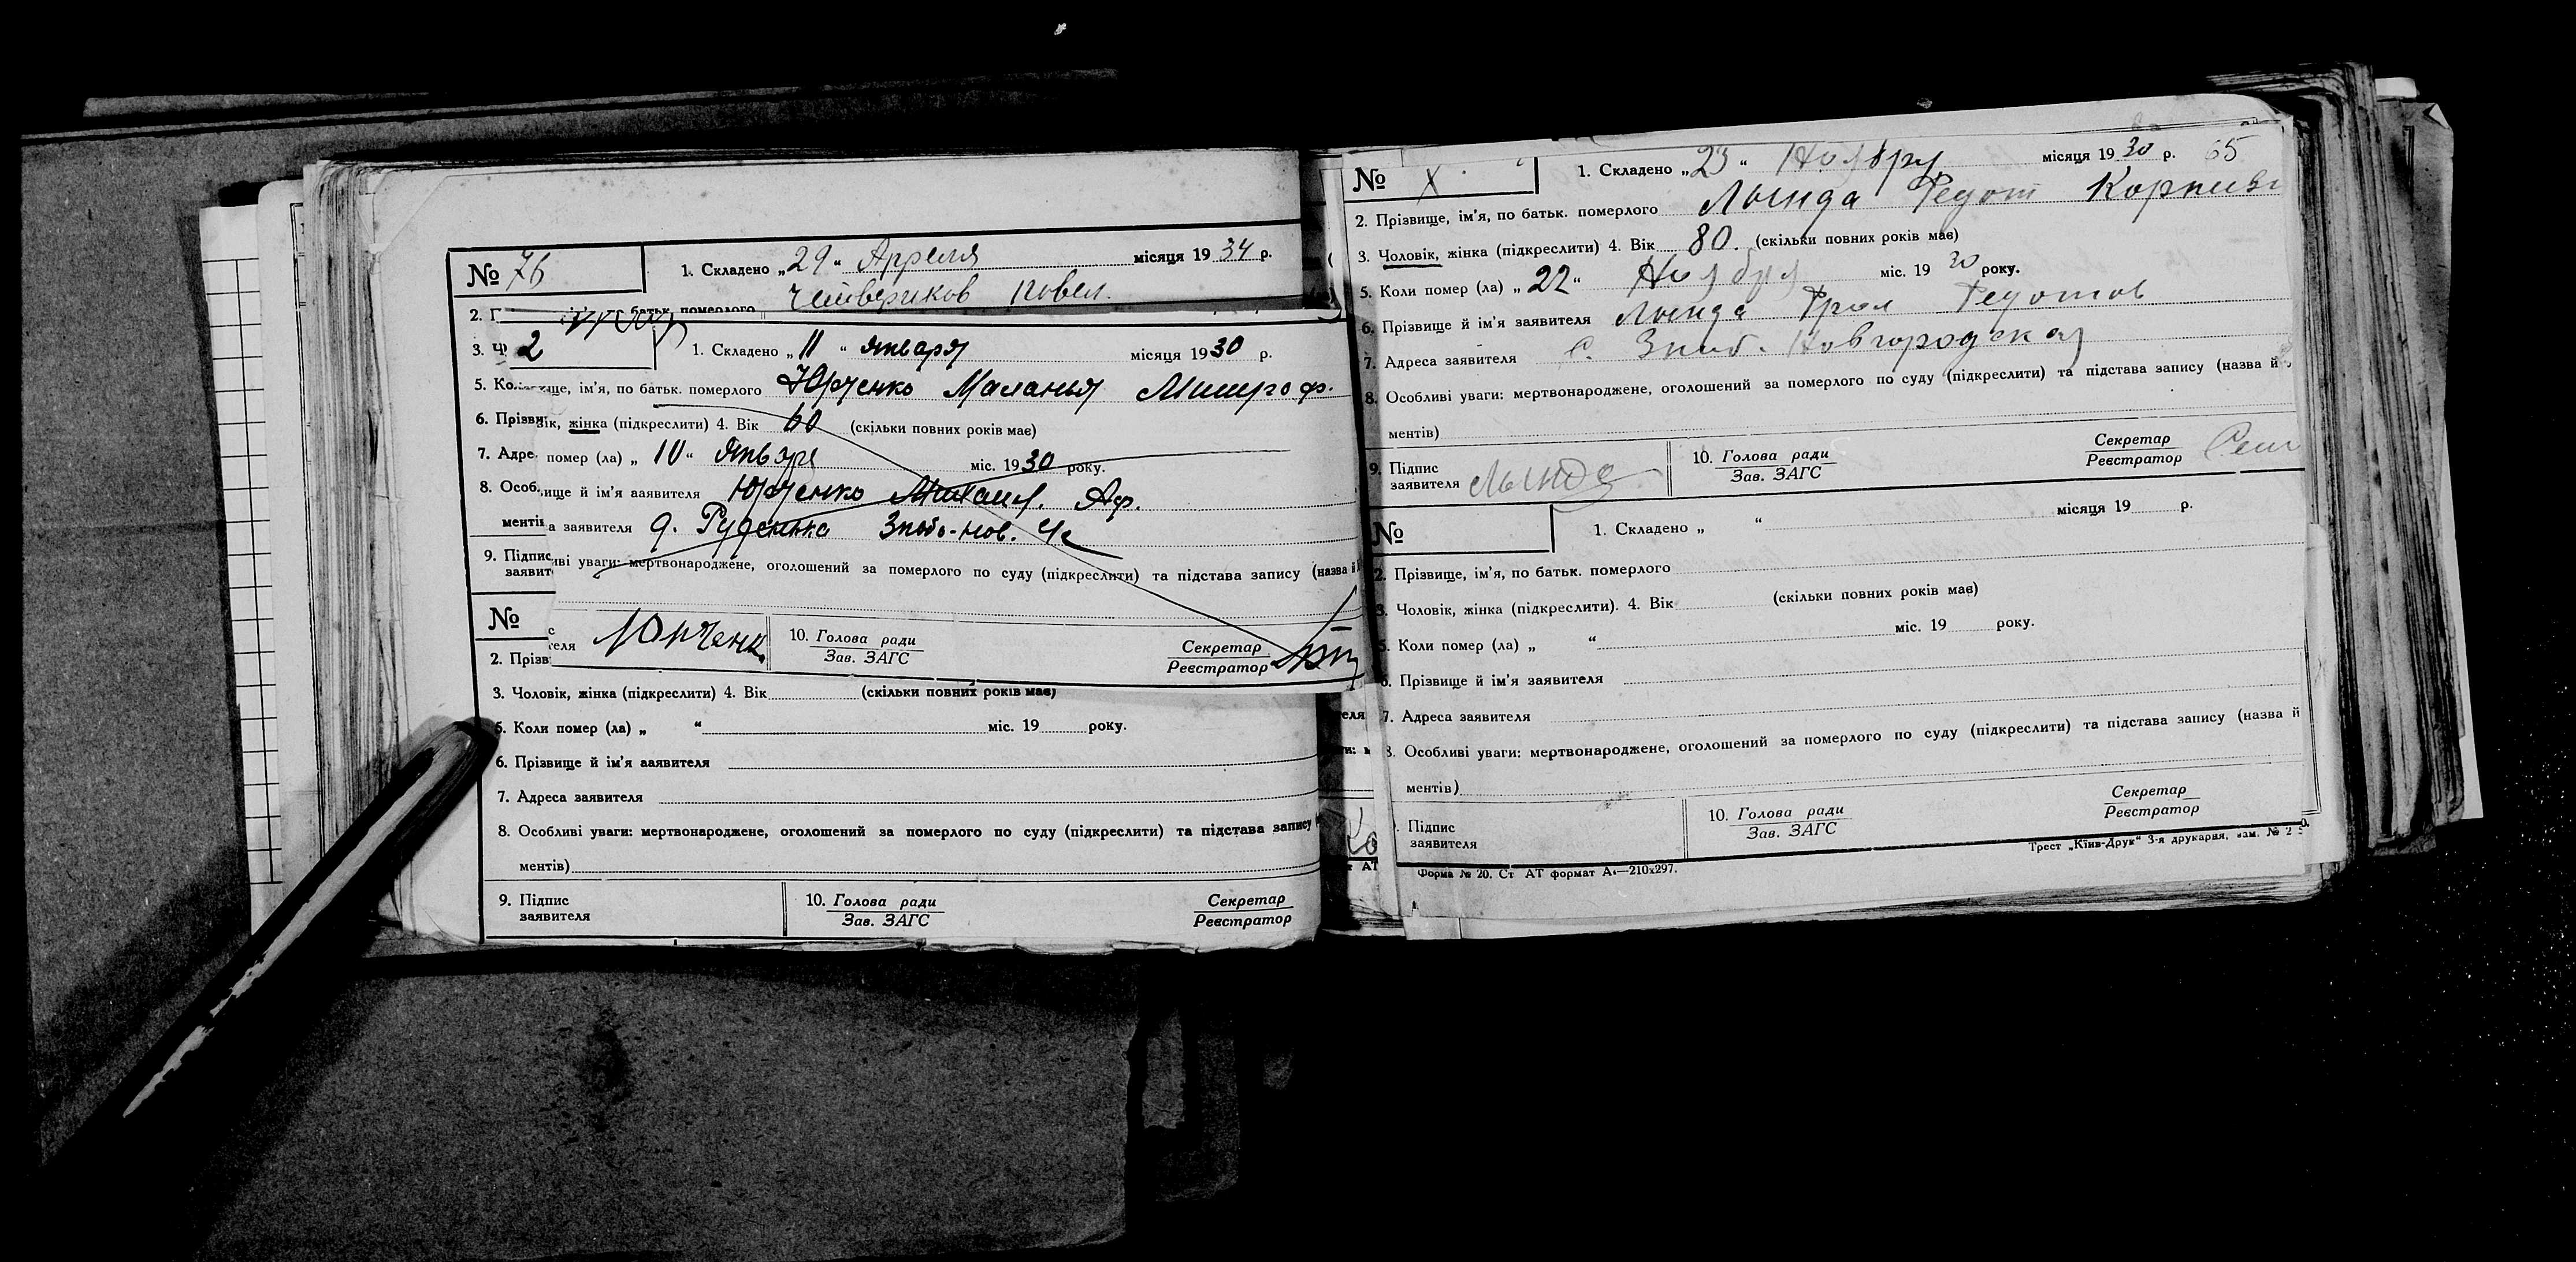 № 76
1. Складено „29“ Апреля місяця 1934 р.
2. П батьк. померлого Четвериков Павел.
3. Ч
№ 2
1. Складено „11“ января місяця 1930 р.
5. Ко ще, ім'я, по батьк. померлого Юрченко Маланья Митроф.
6. Прізви ік, жінка (підкреслити) 4. Вік 60 (скільки повних років має)
7. Адре помер (ла) „10“ января міс. 1930 року.
8. Особ ище й ім'я заявителя Юрченко Михаил. Аф.
менті а заявителя д. Руденька Зноб-Нов.
9. Підпис заявит
іві уваги: мертвонароджене, оголошений за померлого по суду (підкреслити) та підстава запису (назва й
№
теля Юрченк
10. Голова ради
Зав. ЗАГС
Секретар
Реєстратор
2. Прізв
3. Чоловік, жінка (підкреслити) 4. Вік (скільки повних років має)
5. Коли помер (ла) „ “ міс. 19 року.
6. Прізвище й ім'я заявителя
7. Адреса заявителя
8. Особливі уваги: мертвонароджене, оголошений за померлого по суду (підкреслити) та підстава запису
ментів)
9. Підпис
заявителя
10. Голова ради
Зав. ЗАГС
Секретар
Реєстратор
№ X
1. Складено „23“ Ноября місяця 1930 р. 65
2. Прізвище, ім'я, по батьк. померлого Лында Федот
3. Чоловік, жінка (підкреслити) 4. Вік 80. (скільки повних років має)
5. Коли помер (ла) „22“ Ноября міс. 1930 року.
6. Прізвище й ім'я заявителя Лында Фрол Федотов
7. Адреса заявителя с. Зноб. Новгородская
8. Особливі уваги: мертвонароджене, оголошений за померлого по суду (підкреслити) та підстава запису (назва й
ментів)
9. Підпис
заявителя Лында
10. Голова ради
Зав. ЗАГС
Секретар
Реєстратор
№
1. Складено „ “ місяця 19 р.
2. Прізвище, ім'я, по батьк. померлого
3. Чоловік, жінка (підкреслити). 4. Вік (скільки повних років має)
5. Коли помер (ла) „ “ міс. 19 року.
6. Прізвище й ім'я заявителя
7. Адреса заявителя
8. Особливі уваги: мертвонароджене, оголошений за померлого по суду (підкреслити) та підстава запису (назва й
ментів)
Підпис
заявителя
10. Голова ради
Зав. ЗАГС
Секретар
Реєстратор
Форма № 20. Ст АТ формат А4—210х297.
Трест „Київ-Друк“ 3-я друкарня, зам. № 2